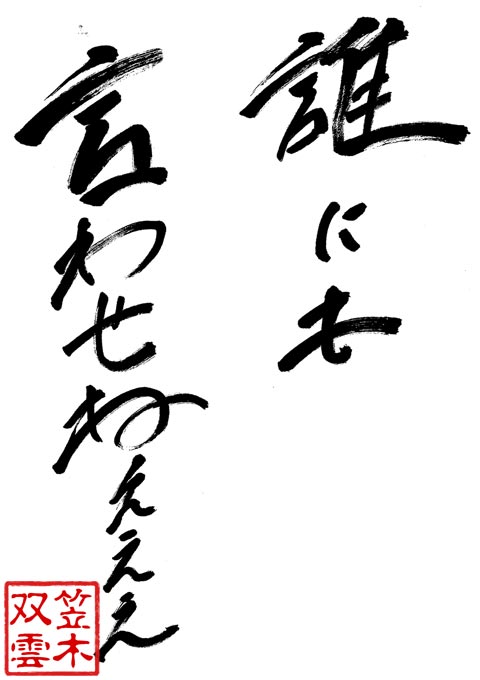 誰にも
言わせねえええ
笠木
双雲